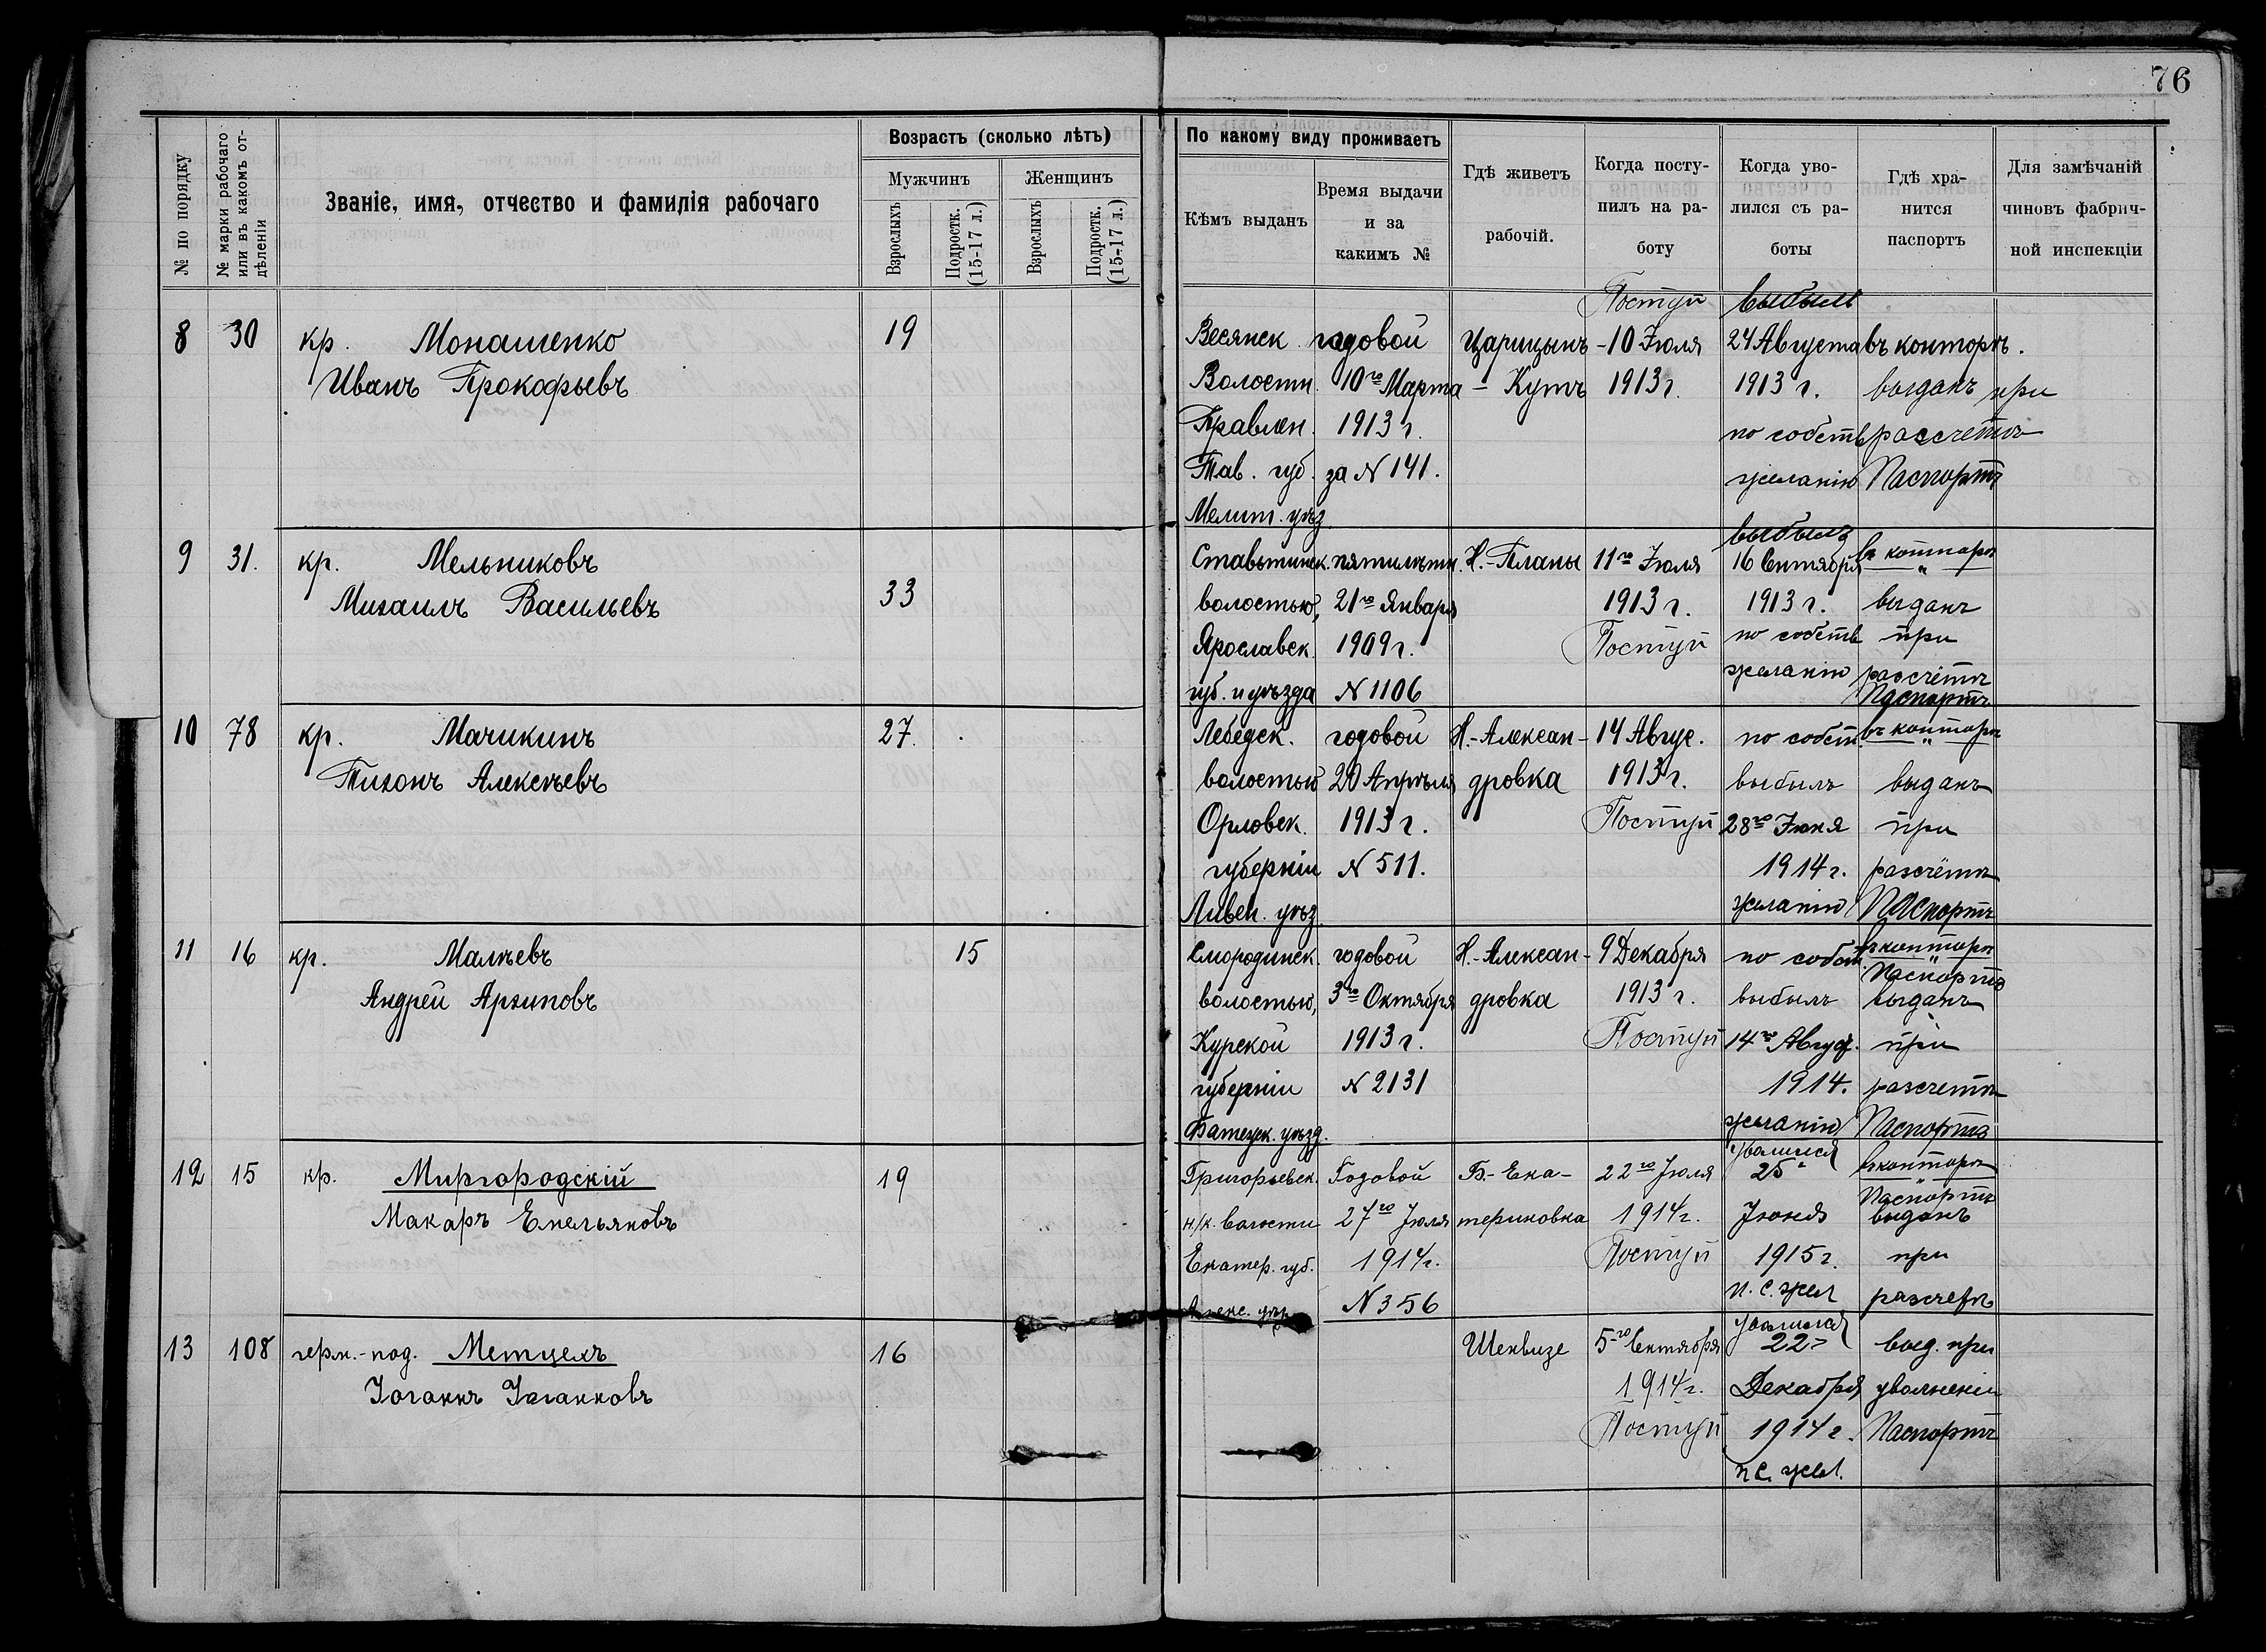 76
№ по порядку
№ марки рабочаго или въ какомъ отдѣленіи
Званіе, имя, отчество и фамилія рабочаго
Возрастъ (сколько лѣтъ)
Мужчинъ
Женщинъ
Взрослыхъ
Подростк. (15-17 л.)
Взрослыхъ
Подростк. (15-17 л.)
По какому виду проживаетъ
Кѣмъ выданъ
Время выдачи
и за
какимъ №
Гдѣ живетъ
рабочій.
Когда посту-
пилъ на ра-
боту
Когда уво-
лился съ ра-
боты
Гдѣ хра-
нится
паспортъ
Для замѣчаній
чиновъ фабрич-
ной инспекціи
Поступ выбылъ
8 30 кр. Монашенко 19 Весянск. годовой Царицынъ - 10 Іюля 24 Августа въ конторѣ.
Иванъ Прокофьевъ Волостн. 10го Марта - Кутъ 1913 г. 1913 г. выданъ при
Правлен. 1913 г. по собств разсчетѣ
Тав. губ. за N 141. желанію Паспортъ
Мелит. уѣзд
выбылъ
9 31. кр. Мельниковъ 33 Ставотинск. пятилѣтн. Н.-Планы 11го Іюля 16 Сентября въ конторѣ
Михаилъ Васильевъ волостью, 21го Января 1913 г. 1913 г. выданъ
Ярославск. 1909 г. Поступ по собств при
губ. и уѣзда N 1106 желанію разсчётѣ
Паспортъ
10 78 кр. Мачикинъ 27. Лебедск. годовой Н.-Алексан- 14 Авгус. по собств въ конторѣ
Тихонъ Алексѣевъ волостью 20 Апрѣля дровка 1913 г. выбылъ выданъ
Орловск. 1913 г. Поступ 28го Іюня при
губерніи N 511. 1914 г. разсчётѣ
Ливен. уѣзд. желанію Паспортъ
11 16 кр. Малѣевъ 15 Смородинск. годовой Н.-Алексан- 9 Декабря по собств въ конторѣ
Паспортъ
Андрей Архиповъ волостью, 3го Октября дровка 1913 г. выбылъ выданъ
Курской 1913 г. Поступ 14го Авгус. при
губерніи N 2131 1914. разсчетѣ
Фатежск. уѣзд. желанію Паспортъ
уволился
12 15 кр. Миргородскій 19 Григорьевск. Годовой Б.-Ека- 22го Іюля 25 въ конторѣ
Паспортъ
Макаръ Емельяновъ волости 27го Іюля териновка 1914 г. Іюня выданъ
Екатер. губ. 1914 г. Поступ 1915 г. при
Алекс. уѣзд N 356 п. с. жел разсчетѣ
уволился
13 108 герм.-под. Метцехъ 16 Шенвизе 5го Сентября 22 выд. при
Іоганнъ Іоганновъ 1914 г. Декабря увольненіи
Поступ 1914 г. Паспортъ
п с. жел.